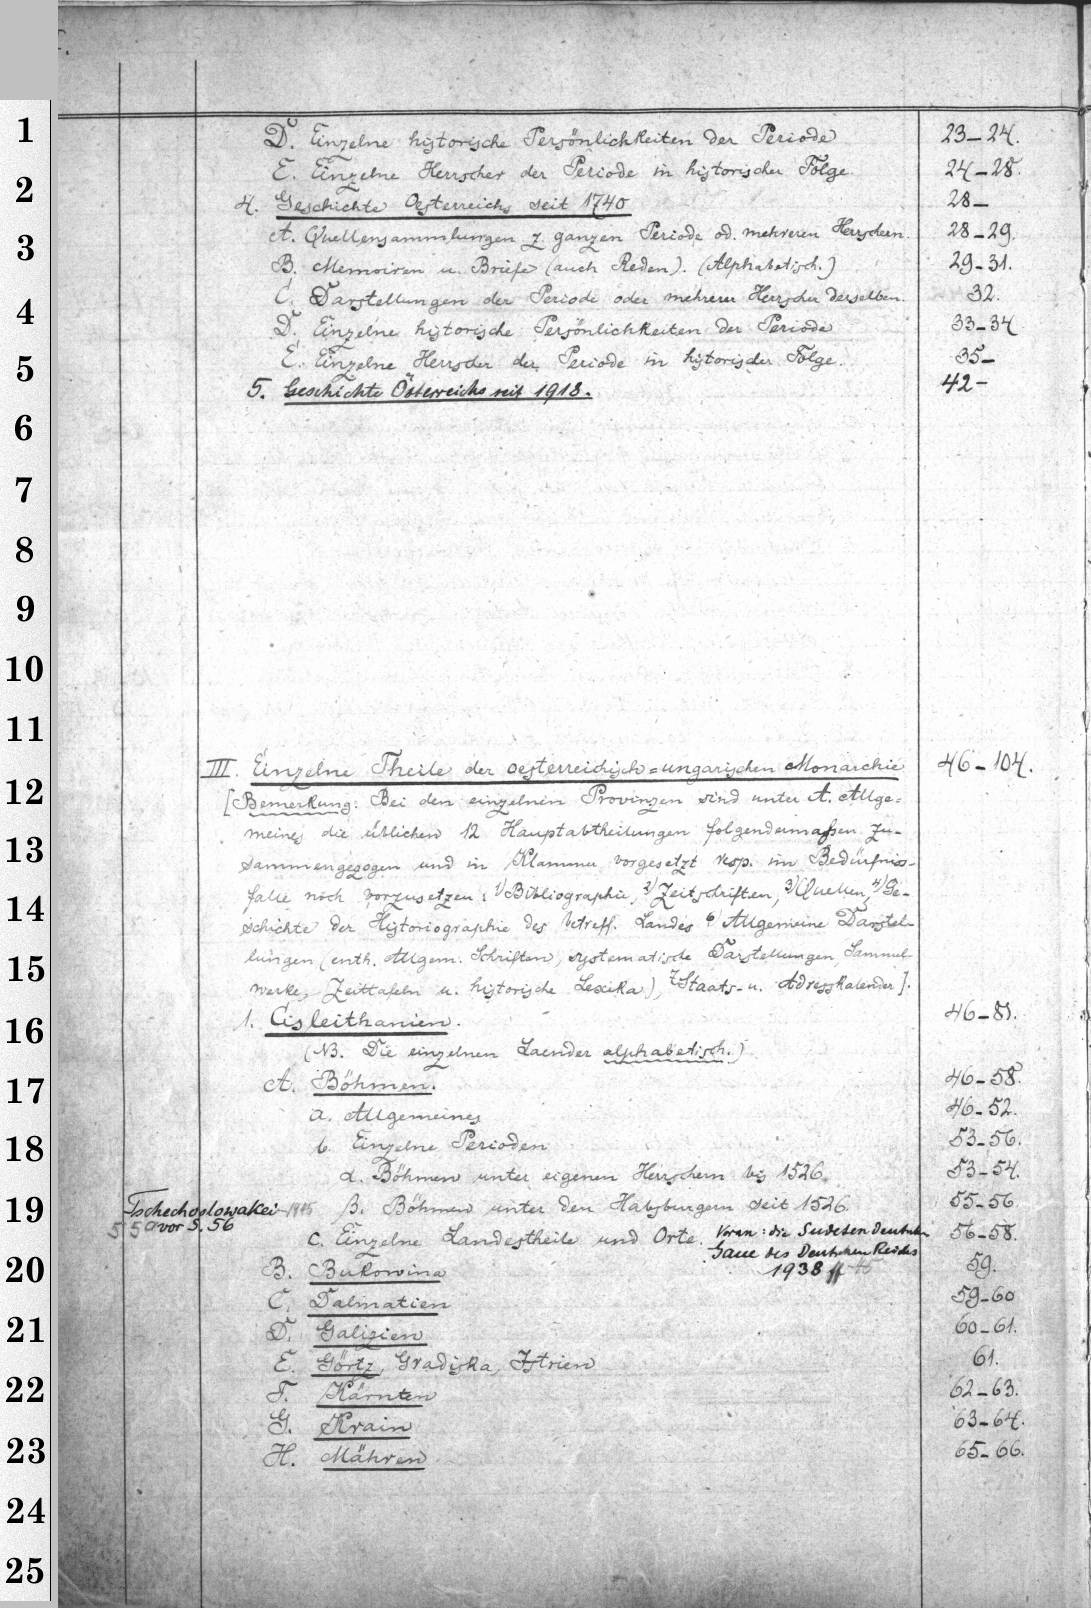 1
D. Einzelne historische Persönlichkeiten der Periode 23–24.
E. Einzelne Herrscher der Periode in historischer Folge. 24–28.
2
4. Geschichte Oesterreichs seit 1740 28–
3
A. Quellensammlungen z. ganzen Periode od. mehreren Herrschern. 28–29.
B. Memoiren u. Briefe (auch Reden). (Alphabetisch.) 29–31.
C. Darstellungen der Periode oder mehrerer Herrscher derselben. 32.
4
D. Einzelne historische Persönlichkeiten der Periode 33–34
5
E. Einzelne Herrscher der Periode in historischer Folge. 35–
5. Geschichte Österreichs seit 1918. 42–
6
7
8
9
10
11
III. Einzelne Theile der oesterreichisch=ungarischen Monarchie 46–104.
12
[Bemerkung: Bei den einzelnen Provinzen sind unter A. Allge=
meines die üblichen 12 Hauptabtheilungen folgendermassen zu-
13
sammengezogen und in Klammer vorgesetzt resp. im Bedürfniss-
falle noch vorzusetzen: 1) Bibliographie, 2) Zeitschriften, 3) Quellen, 4) Ge-
14
schichte der Historiographie des betreff. Landes 6) Allgemeine Darstel-
15
lungen (enth. Allgem. Schriften, systematische Darstellungen, Sammel-
werke, Zeittafeln u. historische Lexika), 7) Staats- u. Adresskalender].
16
1. Cisleithanien. 46–81.
(NB. Die einzelnen Laender alphabetisch.)
17
A. Böhmen. 46–58.
a. Allgemeines 46–52.
18
b. Einzelne Perioden 53–56.
α. Böhmen unter eigenen Herrschern bis 1526. 53–54.
19
Tschechoslowakei –1945
55a vor S. 56
β. Böhmen unter den Habsburgern seit 1526. 55–56
c. Einzelne Landestheile und Orte. 56–58.
Voran: die Sudeten Deutschen
Gaue des Deutschen Reiches
1938 ff
20
B. Bukowina 59.
C. Dalmatien 59–60
21
D. Galizien 60–61.
E. Görtz, Gradiska, Istrien 61.
22
F. Kärnten 62–63.
G. Krain 63–64.
23
H. Mähren 65–66.
24
25